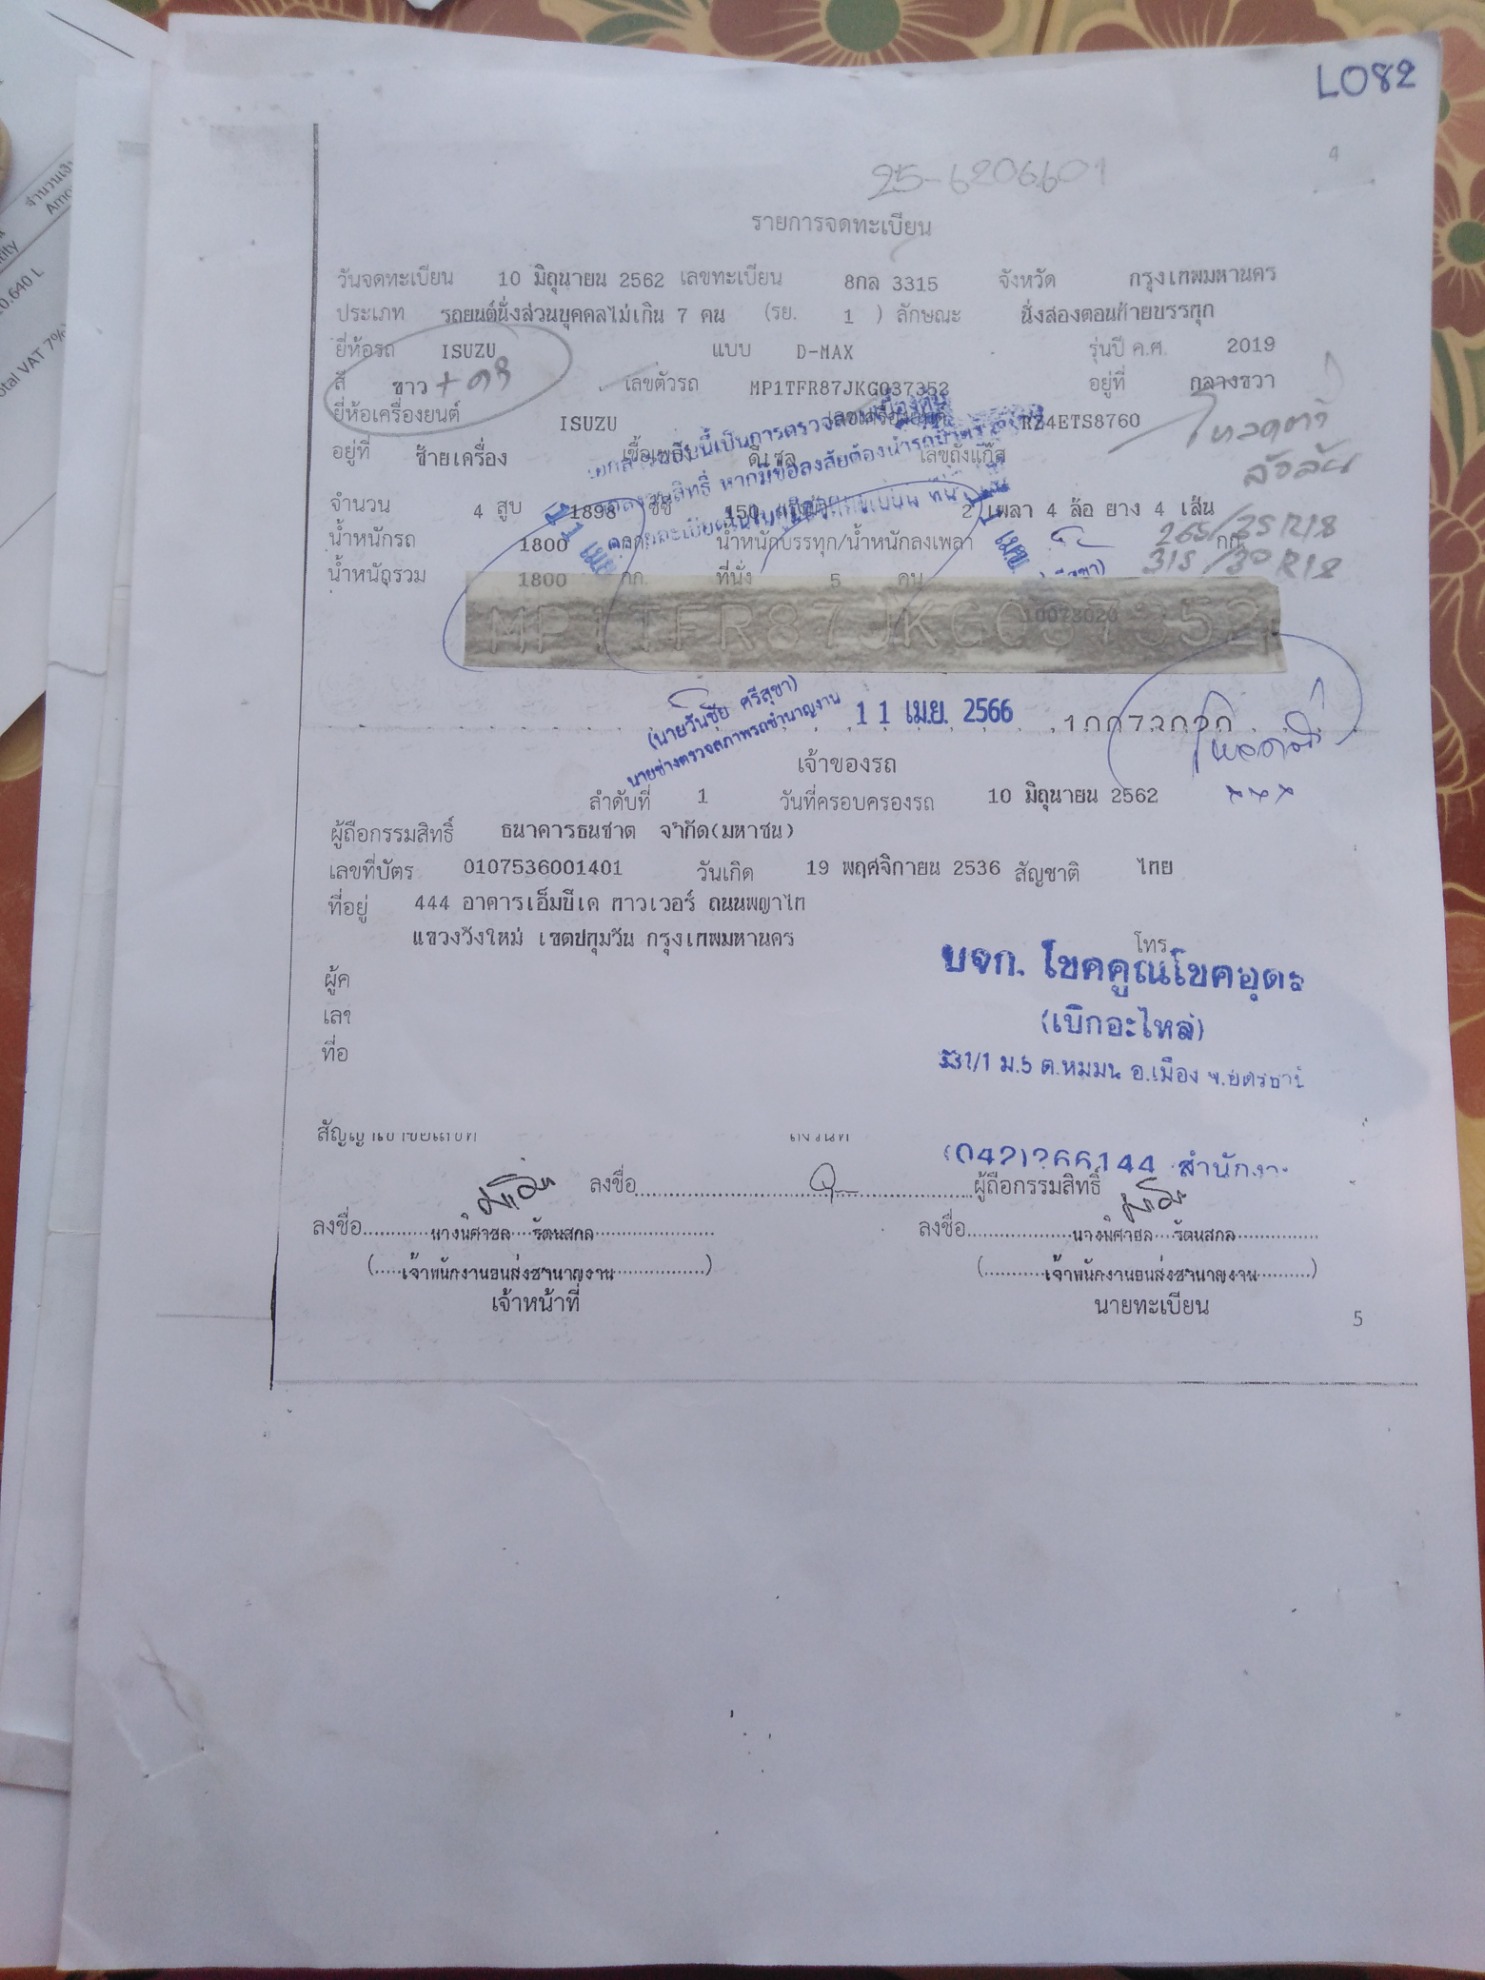 L082
4
25-6206601
รายการจดทะเบียน
วันจดทะเบียน 10 มิถุนายน 2562 เลขทะเบียน 8กล 3315 จังหวัด กรุงเทพมหานคร
ประเภท รถยนต์นั่งส่วนบุคคลไม่เกิน 7 คน (รย. 1 ) ลักษณะ นั่งสองตอนท้ายบรรทุก
ยี่ห้อรถ ISUZU แบบ D-MAX รุ่นปี ค.ศ. 2019
สี ขาว + ดำ เลขตัวรถ MP1TFR87JKG037352 อยู่ที่ กลางขวา
ยี่ห้อเครื่องยนต์ ISUZU RZ4ETS8760
โหลดเตี้ย
อยู่ที่ ซ้ายเครื่อง เชื้อเพลิง ดีเซล เลขถังแก๊ส
ล้อล้น
จำนวน 4 สูบ 1898 ซีซี 150 2 เพลา 4 ล้อ ยาง 4 เส้น
น้ำหนักรถ 1800 น้ำหนักบรรทุก/น้ำหนักลงเพลา กก.
265/35R18
315/30R18
น้ำหนักรวม 1800 กก. ที่นั่ง 5 คน
MP1TFR87JKG037352
10073020
(นายวันชัย ศรีสุขา)
นายช่างตรวจสภาพรถชำนาญงาน
11 เม.ย. 2566
10073020
เจ้าของรถ
ลำดับที่ 1 วันที่ครอบครองรถ 10 มิถุนายน 2562
ผู้ถือกรรมสิทธิ์ ธนาคารธนชาต จำกัด(มหาชน)
เลขที่บัตร 0107536001401 วันเกิด 19 พฤศจิกายน 2536 สัญชาติ ไทย
ที่อยู่ 444 อาคารเอ็มบีเค ทาวเวอร์ ถนนพญาไท
แขวงวังใหม่ เขตปทุมวัน กรุงเทพมหานคร โทร
บจก. โชคคูณโชคอุดร
(เบิกอะไหล่)
331/1 ม.5 ต.หมูม่น อ.เมือง จ.อุดรธานี
(042)266144 สำนักงาน
ลงชื่อ ผู้ถือกรรมสิทธิ์
ลงชื่อ นางนิศาชล รัตนสกล ลงชื่อ นางนิศาชล รัตนสกล
(เจ้าพนักงานขนส่งชำนาญงาน) (เจ้าพนักงานขนส่งชำนาญงาน)
เจ้าหน้าที่ นายทะเบียน
5